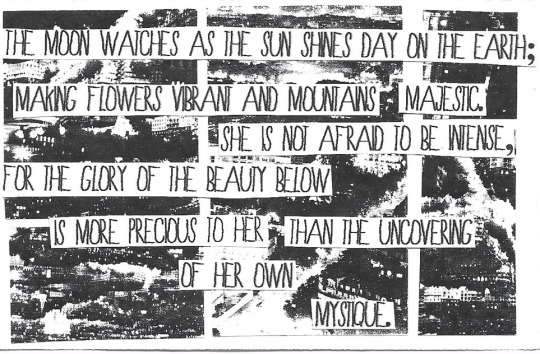 THE MOON WATCHES AS THE SUN SHINES DAY ON THE EARTH;
MAKING FLOWERS VIBRANT AND MOUNTAINS MAJESTIC.
SHE IS NOT AFRAID TO BE INTENSE,
FOR THE GLORY OF THE BEAUTY BELOW
IS MORE PRECIOUS TO HER THAN THE UNCOVERING
OF HER OWN
MYSTIQUE.